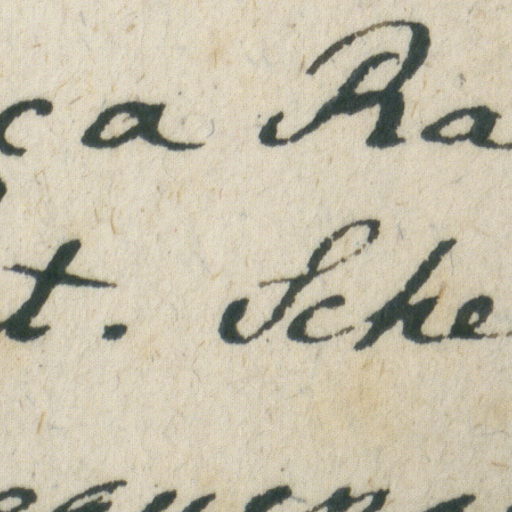 ca Ra
t. Sche